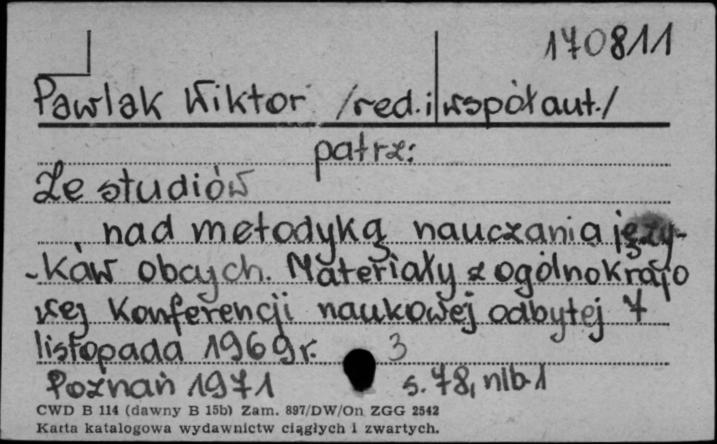 170811
Pawlak Wiktor /red. i współaut./
patrz:
Ze studiów
nad metodyką nauczania języ-
-ków obcych. Materiały z ogólnokrajo
wej Konferencji naukowej odbytej 7
listopada 1969 r. 3
Poznań 1971 s. 78, nlb. 1
CWD B 114 (dawny B 15b) Zam. 897/DW/On ZGG 2542
Karta katalogowa wydawnictw ciągłych i zwartych.